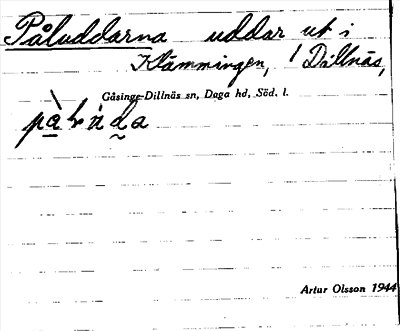 Påluddarna uddar ut i
Klämmingen, / Dillnäs,
Gåsinge-Dillnäs sn, Daga hd, Söd. l.
Artur Olsson 1944